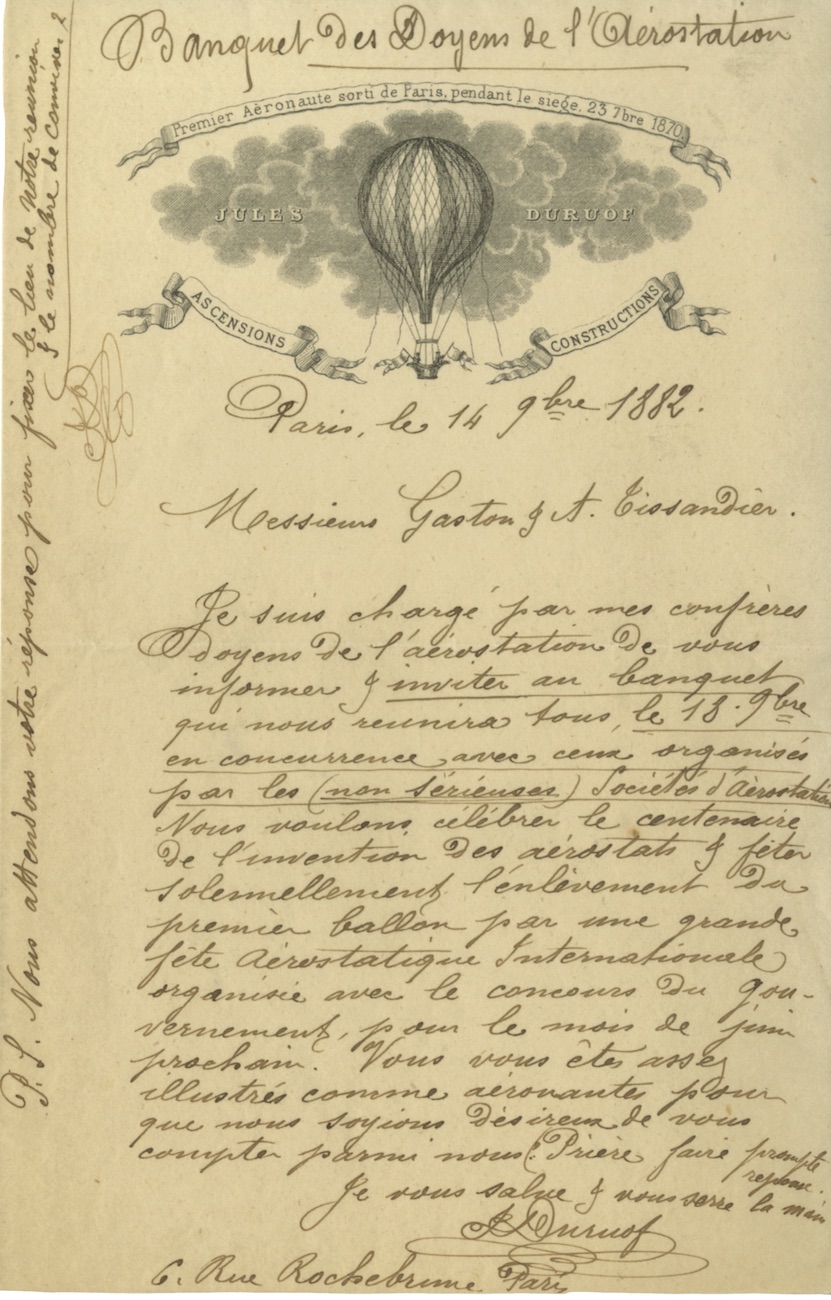 Banquet des Doyens de l'Aérostation
Premier Aéronaute sorti de Paris, pendant le siège, 23 7bre 1870
JULES DURUOF
ASCENSIONS CONSTRUCTIONS
Paris, le 14 9bre 1882.
Messieurs Gaston & A. Tissandier.
Je suis chargé par mes confrères
doyens de l'aérostation de vous
informer & inviter au banquet
qui nous reunira tous, le 18. 9bre
en concurrence avec ceux organisés
par les (non sérieuses) Sociétés d'Aérostation
Nous voulons célébrer le centenaire
de l'invention des aérostats & fêter
solennellement l'enlèvement du
premier ballon par une grande
fête Aérostatique Internationale
organisée avec le concours du gou-
vernement, pour le mois de juin
prochain. Vous vous êtes assez
illustrés comme aéronautes pour
que nous soyions désireux de vous
compter parmi nous. Prière faire prompte
reponse.
Je vous salue & vous serre la main
J Duruof
6. Rue Rochebrune Paris
P. S. Nous attendons votre réponse pour fixer le lieu de notre reunion
& le nombre de convives ?